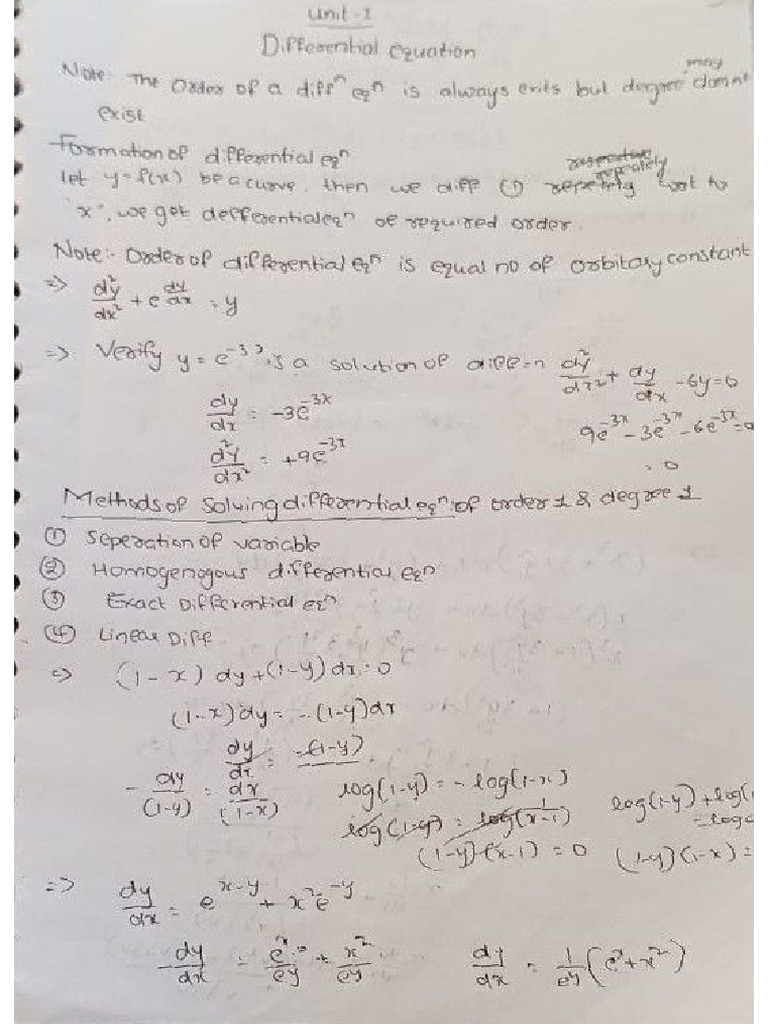 Unit - I
Differential equation
may
Note: The Order of a diffⁿ eqⁿ is always exits but degree doesnt
exist
Formation of differential eqⁿ
seperately
let y = f(x) be a curve, then we diff ① wrt to
"x", we get defferential eqⁿ of required order.
Note:- Order of differential eqⁿ is equal no of orbitary constant
=> d²y/dx² + e^(dy/dx) = y
=> Verify y = e⁻³ˣ is a solution of diff=n d²y/dx² + dy/dx - 6y = 0
dy/dx = -3e⁻³ˣ
9e⁻³ˣ - 3e⁻³ˣ - 6e⁻³ˣ = 0
d²y/dx² = +9e⁻³ˣ
= 0
Methods of Solving differential eqⁿ: of order 1 & degree 1
① Seperation of variable
② Homogenogous differential eqⁿ
③ Exact Differential eqⁿ
④ Linear Diff
=> (1 - x) dy + (1 - y) dx = 0
(1 - x) dy = - (1 - y) dx
dy/dx = -(1-y)
- dy/(1-y) = dx/(1-x) log(1-y) = - log(1-x) log(1-y) + log(
log(1-y) = log(1/(x-1)) = log c
(1-y)(x-1) = 0 (1-y)(1-x) =
=> dy/dx = e^(x-y) + x²e^(-y)
dy/dx = eˣ/eʸ + x²/eʸ dy/dx = 1/eʸ (eˣ + x²)